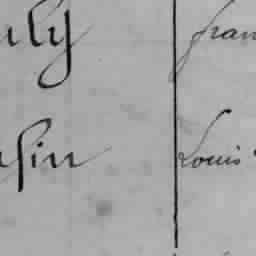 uly fran
sin Louis